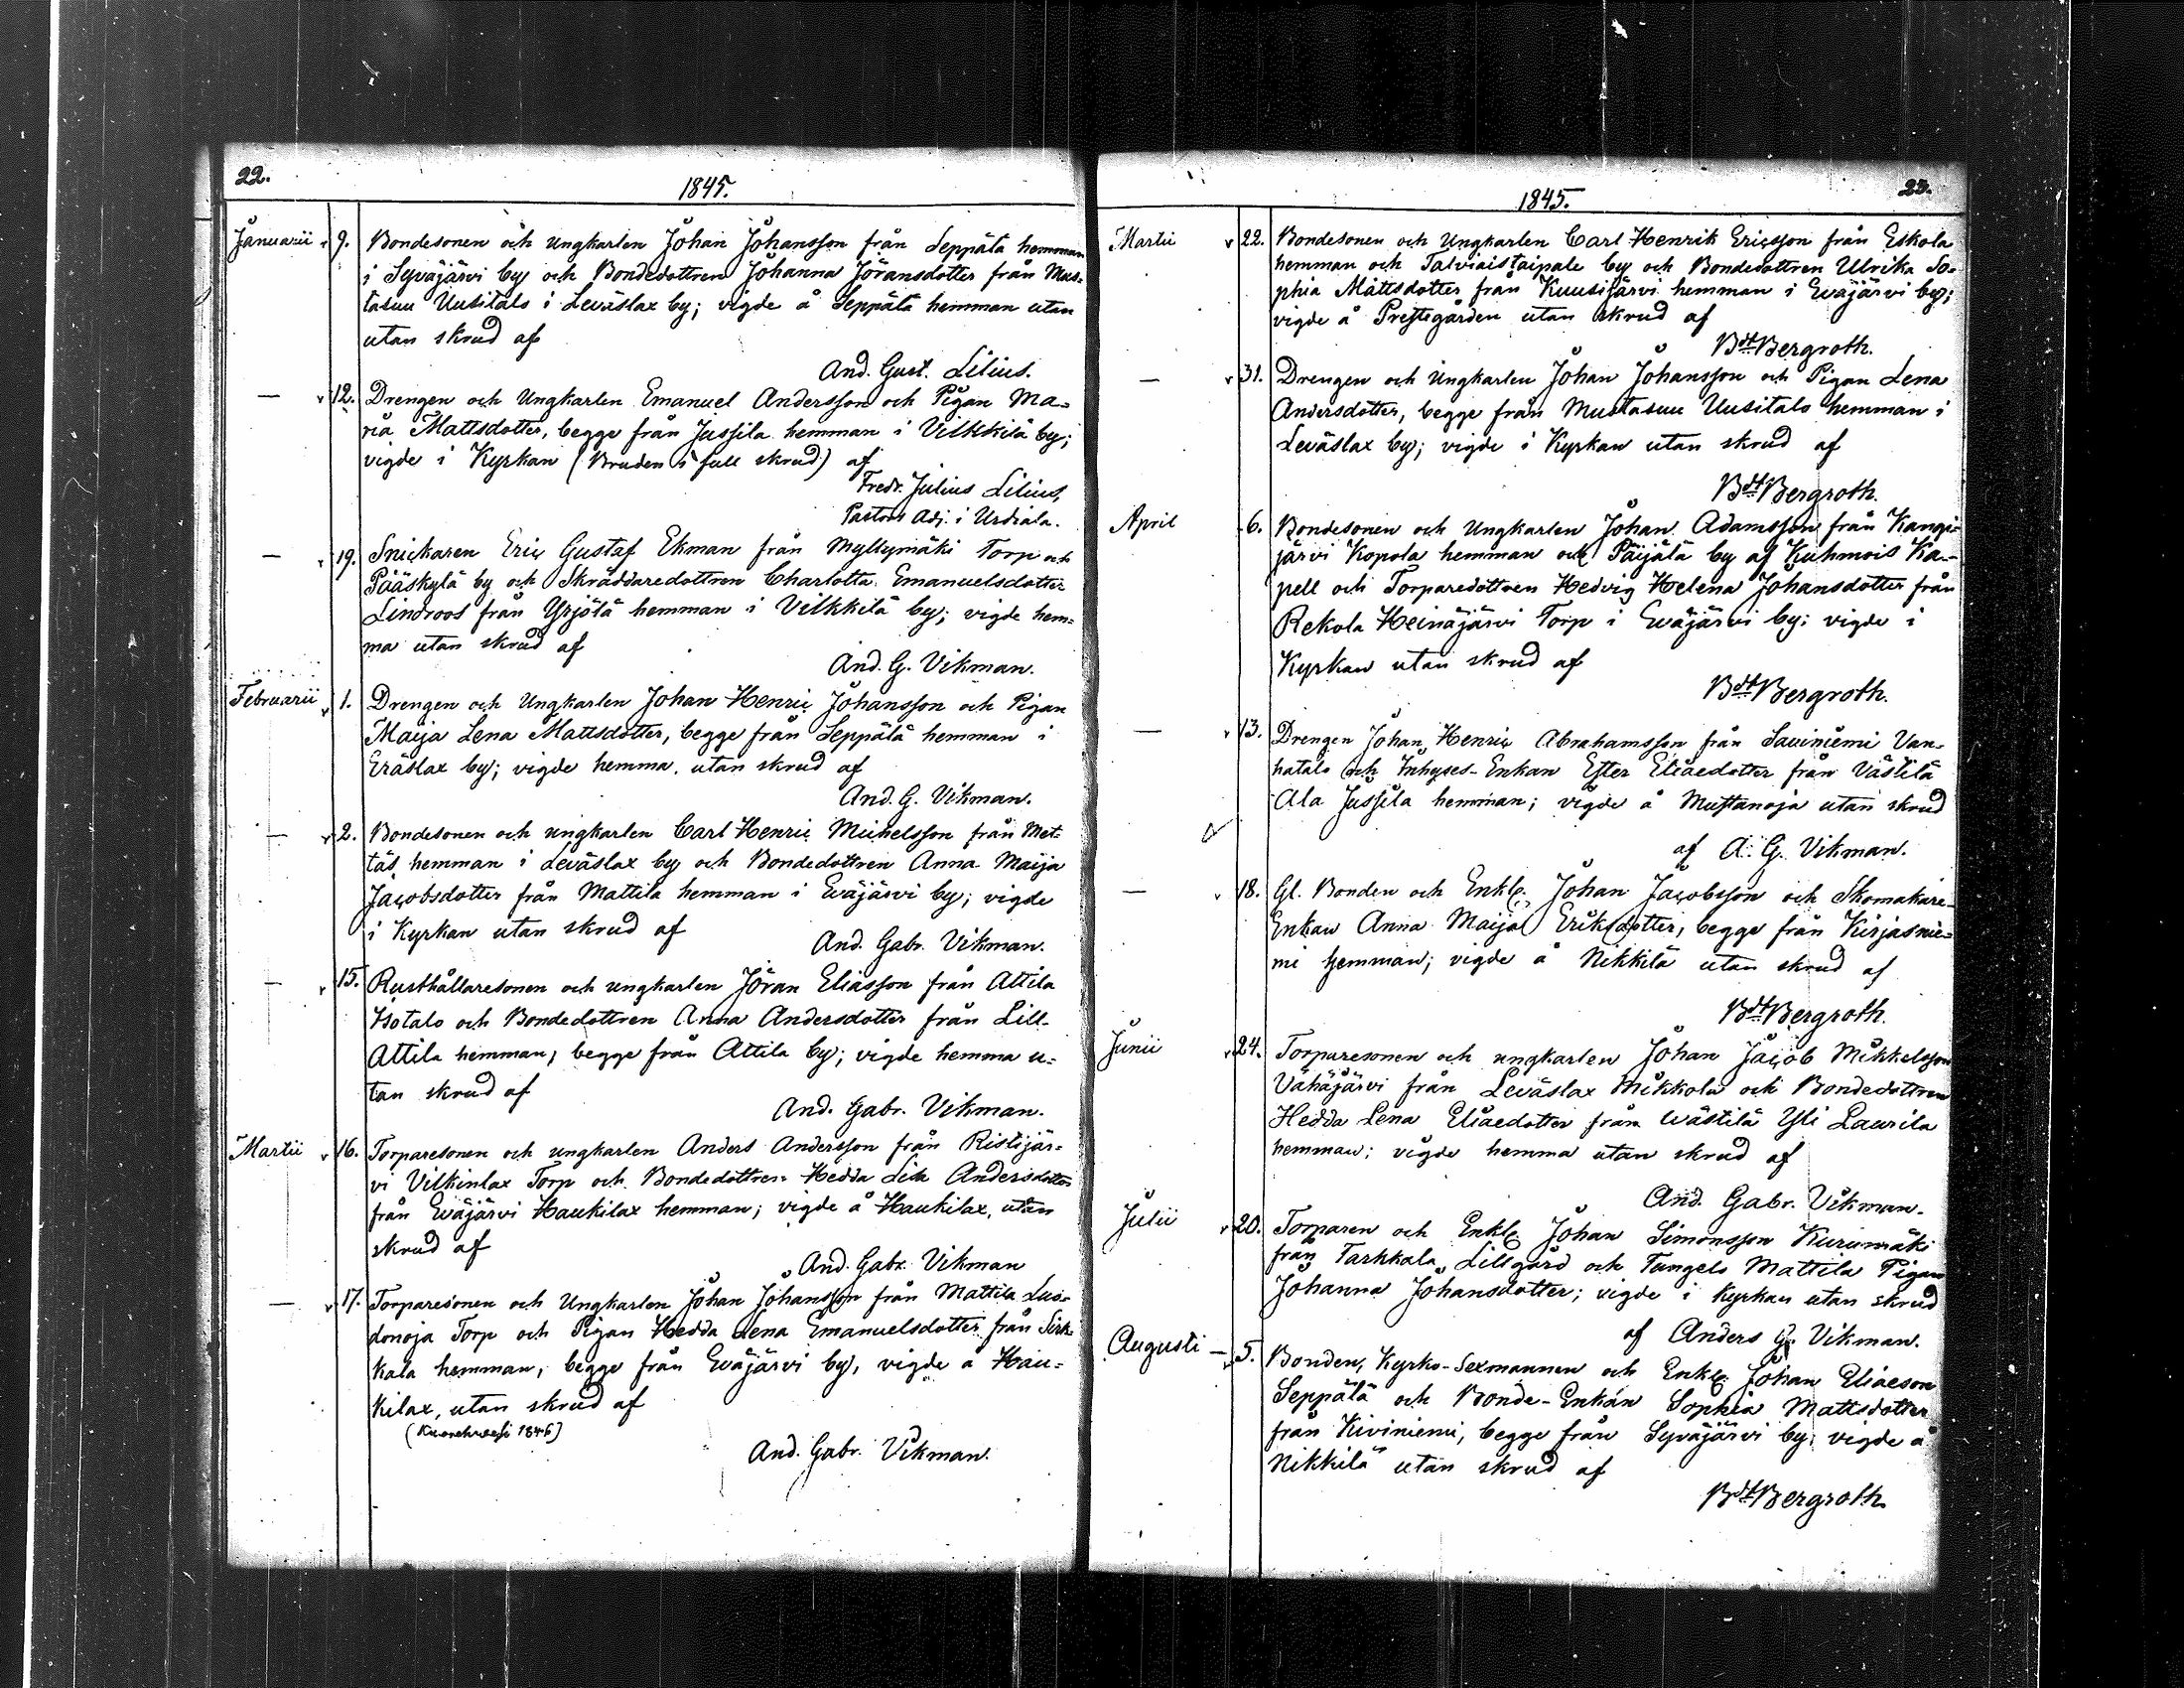 22.
1845.
Januarii 9. Bondesonen och ungkarlen Johan Johansson från Seppälä hemman
i Syväjärvi by och Bondedottren Johanna Jöransdotter från Mus-
tasuu Uusitalo i Leväslax by; vigde å Seppälä hemman utan
utan skrud af
And. Gust. Lilius.
— v 12. Drengen och Ungkarlen Emanuel Andersson och Pigan Ma-
ria Mattsdotter, begge från Jussila hemman i Vilkkilä by;
vigde i Kyrkan (Bruden i full skrud) af
Fredr. Julius Lilius,
Pastors Adj. i Urdiala.
— v 19. Snickaren Eric Gustaf Ekman från Myllymäki Torp och
Pääskylä by och Skräddaredottren Charlotta Emanuelsdotter
Lindroos från Yrjölä hemman i Vilkkilä by; vigde hem-
ma utan skrud af
And. G. Vikman.
Februarii v 1. Drengen och Ungkarlen Johan Henric Johansson och Pigan
Maija Lena Mattsdotter, begge från Seppälä hemman i
Eräslax by; vigde hemma utan skrud af
And. G. Vikman.
— v 2. Bondesonen och ungkarlen Carl Henric Michelsson från Met-
täs hemman i Leväslax by och Bondedottren Anna Maija
Jacobsdotter från Mattila hemman i Eväjärvi by; vigde
i Kyrkan utan skrud af
And. Gabr. Vikman.
— v 15. Rusthållaresonen och ungkarlen Jöran Eliasson från Attila
Isotalo och Bondedottren Anna Andersdotter från Lill-
Attila hemman, begge från Attila by; vigde hemma u-
tan skrud af
And. Gabr. Vikman.
Martii v 16. Torparesonen och ungkarlen Anders Andersson från Ristijär-
vi Vilkinlax Torp och Bondedottren Hedda Lisa Andersdotter
från Eväjärvi Haukilax hemman; vigde å Haukilax, utan
skrud af
And. Gabr. Vikman
— v 17. Torparesonen och Ungkarlen Johan Johansson från Mattila Luo-
donoja Torp och Pigan Hedda Lena Emanuelsdotter från Sirk-
kala hemman, begge från Eväjärvi by, vigde å Hau-
kilax, utan skrud af
(Kuorehvesi 1846)
And. Gabr. Vikman.
23.
1845.
Martii v 22. Bondesonen och Ungkarlen Carl Henrik Ericsson från Eskola
hemman och Talviaistaipale by och Bondedottren Ulrika So-
phia Mattsdotter från Kuusijärvi hemman i Eväjärvi by;
vigde å Prestegården utan skrud af
Bdt Bergroth.
— v 31. Drengen och Ungkarlen Johan Johansson och Pigan Lena
Andersdotter, begge från Mustasuu Uusitalo hemman i
Leväslax by; vigde i Kyrkan utan skrud af
Bdt Bergroth.
April 6. Bondesonen och Ungkarlen Johan Adamsson från Kangi-
järvi Kopola hemman och Päijälä by af Kuhmois Ka-
pell och Torparedottren Hedvig Helena Johansdotter från
Rekola Heinäjärvi Torp i Eväjärvi by; vigde i
Kyrkan utan skrud af
Bdt Bergroth.
— v 13. Drengen Johan Henric Abrahamsson från Saviniemi Van-
hatalo och Inhyses-Enkan Ester Eliaedotter från Västilä
Ala Jussila hemman; vigde å Mustanoja utan skrud
af A. G. Vikman.
— v 18. Gl. Bonden och Enkl. Johan Jacobsson och Skomakare-
Enkan Anna Maija Eriksdotter, begge från Kirjasnie-
mi hemman; vigde å Nikkilä utan skrud af
Bdt Bergroth.
Junii v 24. Torparesonen och ungkarlen Johan Jacob Mikkelsson
Vähäjärvi från Leväslax Mikkola och Bondedottren
Hedda Lena Eliaedotter från Wästilä Yli Laurila
hemman; vigde hemma utan skrud af
And. Gabr. Vikman.
Julii v 20. Torparen och Enkl. Johan Simonsson Kurumäki
från Tarkkala Lillgård och Tungelo Mattila Pigan
Johanna Johansdotter; vigde i Kyrkan utan skrud
af Anders G. Vikman.
Augusti — v 5. Bonden, Kyrko-Sexmannen och Enkl. Johan Eliaeson
Seppälä och Bonde-Enkan Sophia Mattsdotter
från Kiviniemi, begge från Syväjärvi by; vigde å
Nikkilä utan skrud af
Bdt Bergroth.